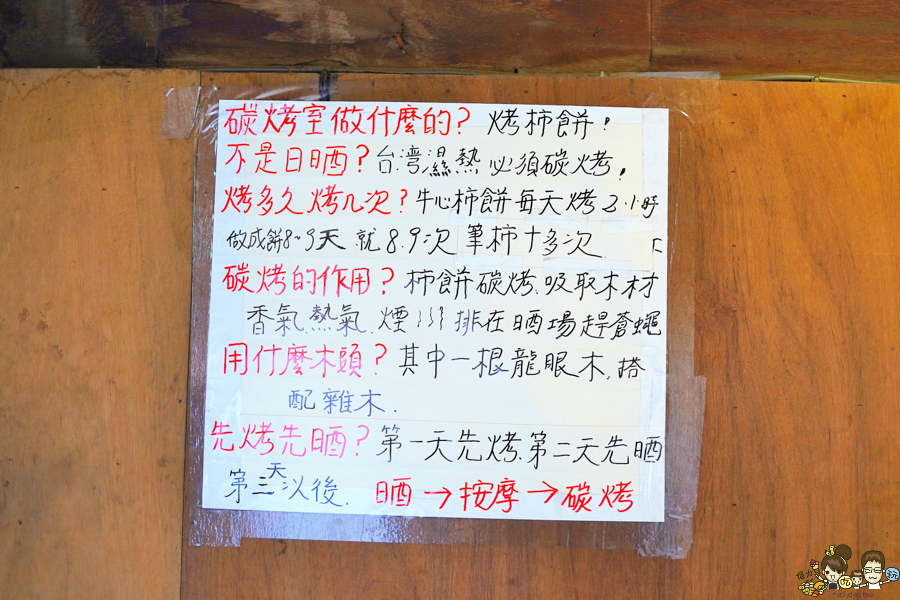 碳烤室做什麼的？ 烤柿餅！
不是日晒？台湾濕熱必須碳烤，
烤多久烤几次？牛心柿餅每天烤2.小時
做成餅8~9天 就8.9次 筆柿十多次
碳烤的作用？柿餅碳烤.吸取木材
香氣熱氣.煙 排在晒場趕蒼蠅
用什麼木頭？其中一根龍眼木,搭
配雜木.
先烤先晒？第一天先烤.第二天先晒
第三天以後. 晒→按摩→碳烤